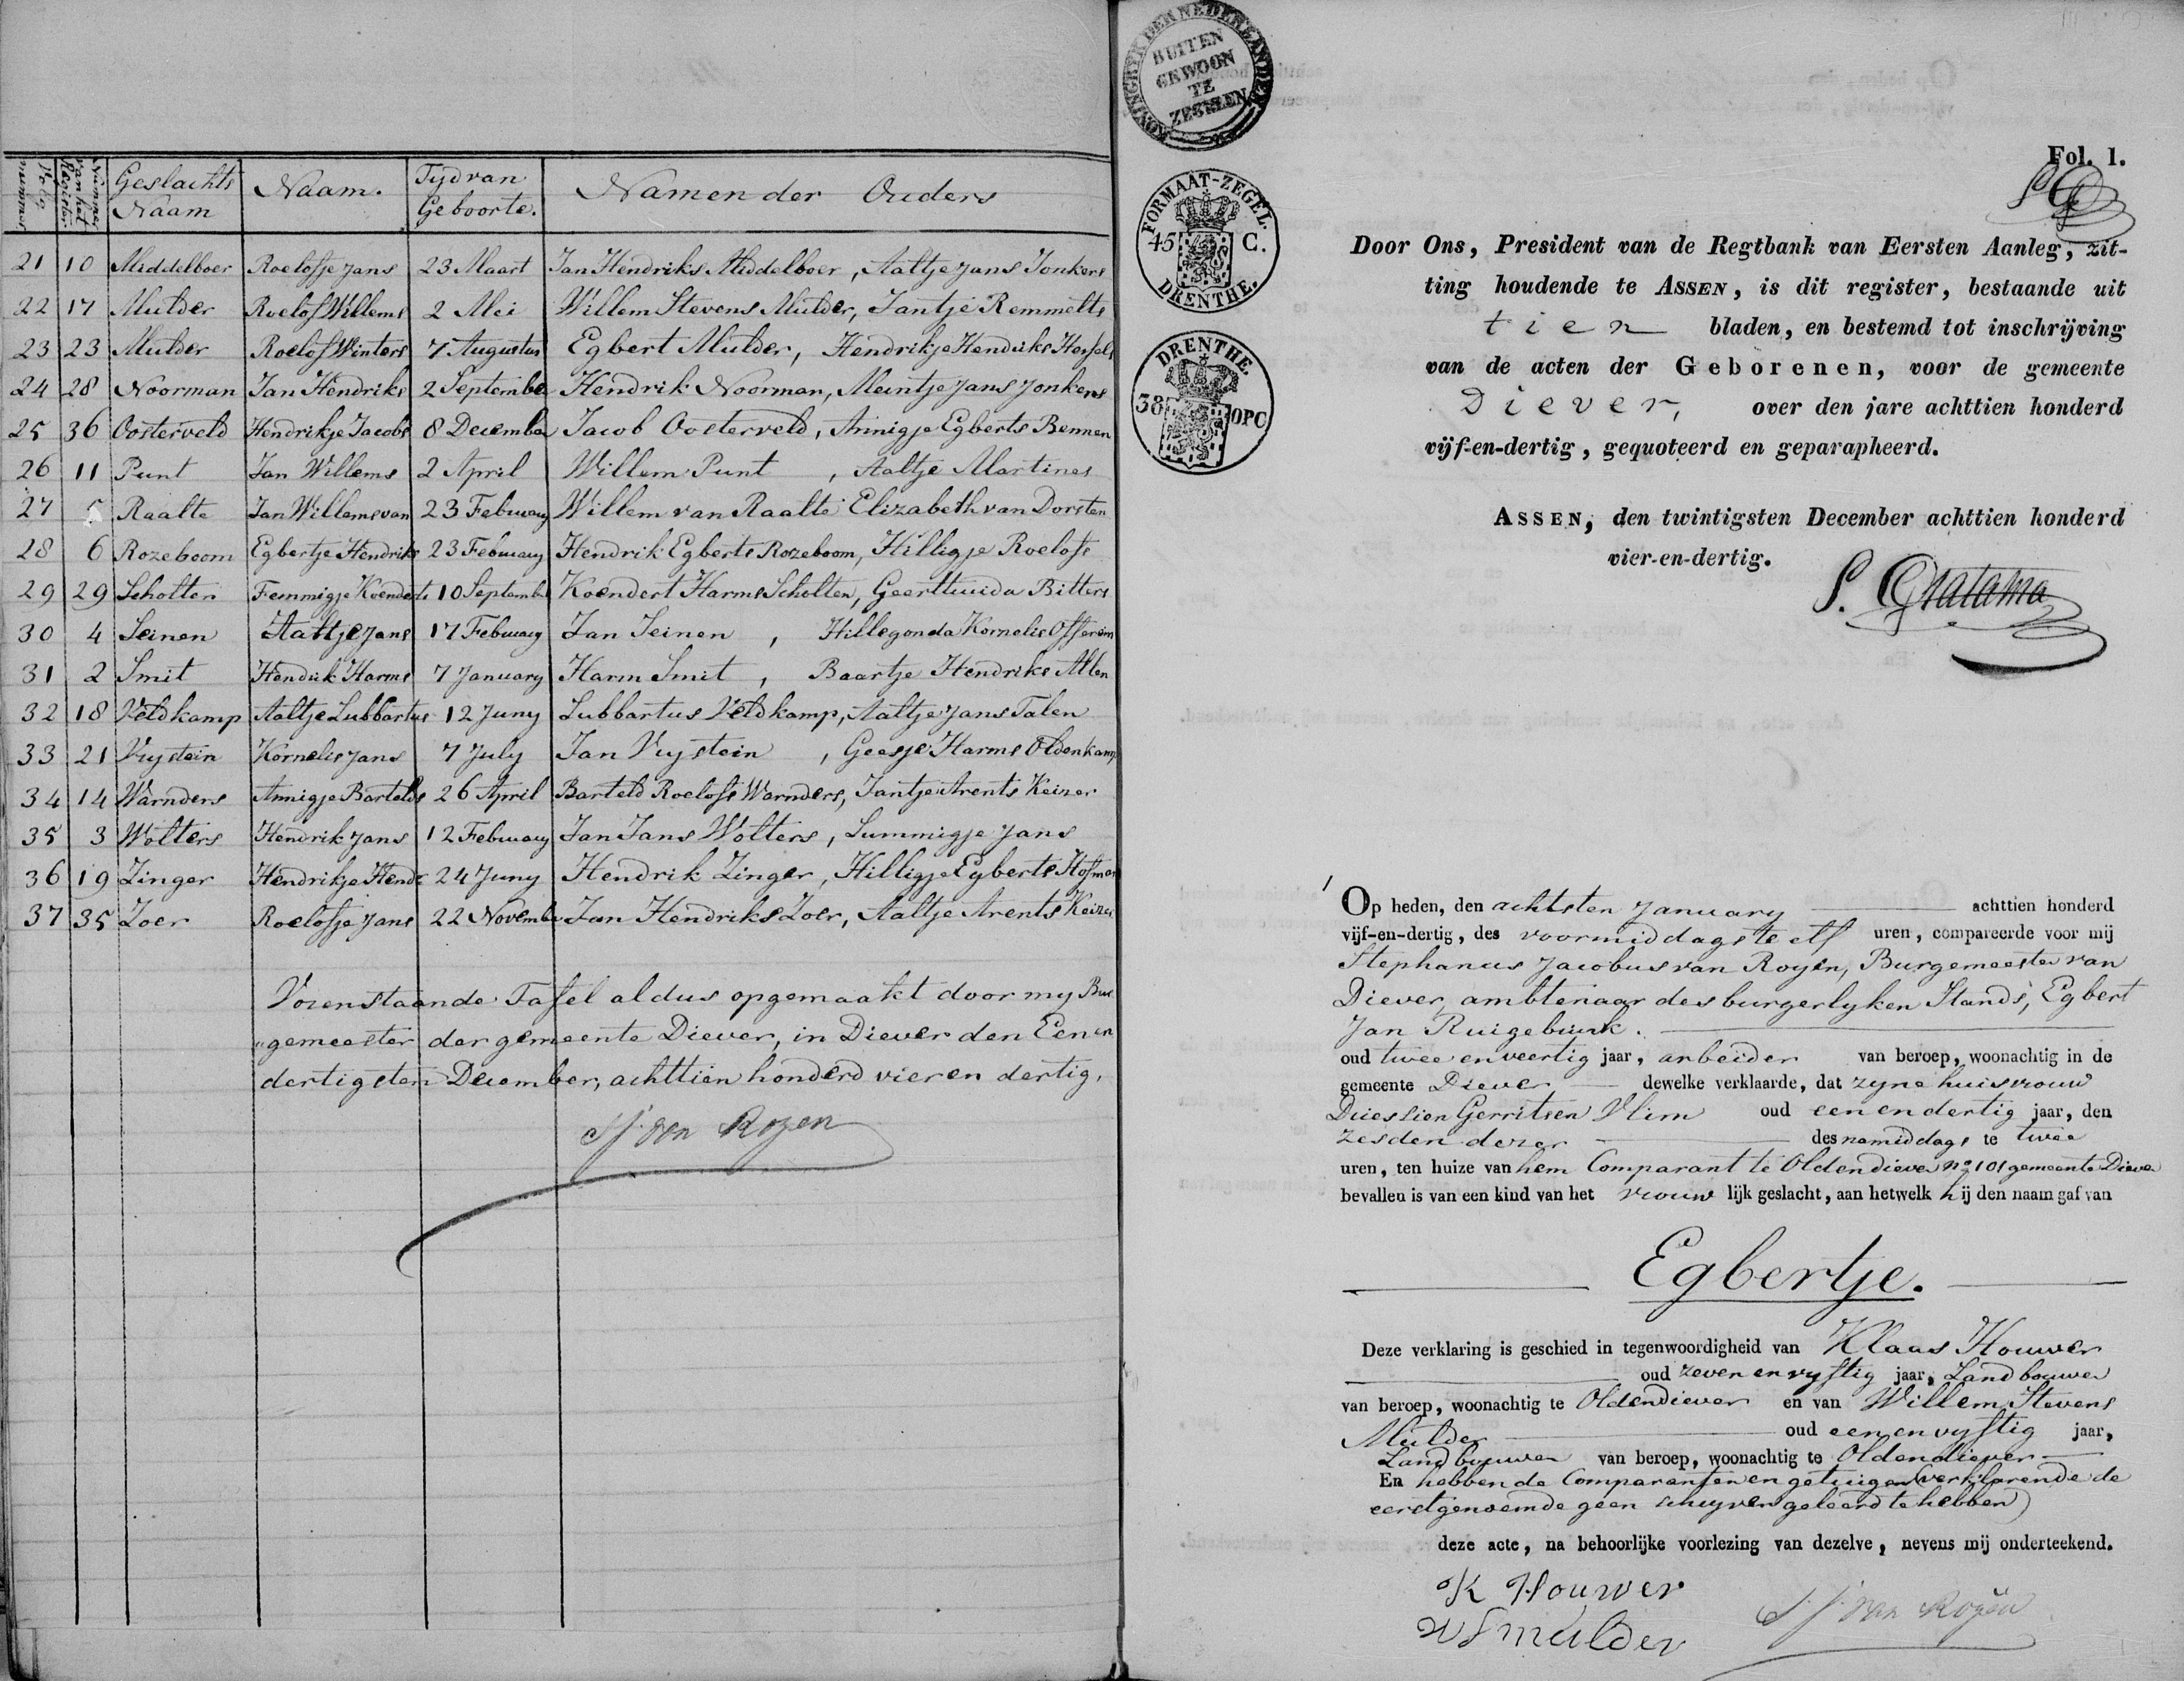 Volg nummer | Nummer van het Register | Geslachts Naam | Naam. | Tyd van Geboorte. | Namen der Ouders
21 | 10 | Middelboer | Roelofje Jans | 23 Maart | Jan Hendriks Middelboer, Aaltje Jans Jonkers
22 | 17 | Mulder | Roelof Willems | 2 Mei | Willem Stevens Mulder, Jantje Remmelts
23 | 23 | Mulder | Roelof Winters | 7 Augustus | Egbert Mulder, Hendrikje Hendriks Hessels
24 | 28 | Noorman | Jan Hendriks | 2 September | Hendrik Noorman, Meintje Jans Jonkers
25 | 36 | Oosterveld | Hendrikje Jacobs | 8 December | Jacob Oosterveld, Annigje Egberts Bennen
26 | 11 | Punt | Jan Willems | 2 April | Willem Punt, Aaltje Martines
27 | 5 | Raalte | Jan Willems van | 23 February | Willem van Raalte Elizabeth van Dorsten
28 | 6 | Rozeboom | Egbertje Hendriks | 23 February | Hendrik Egberts Rozeboom, Hilligje Roelofs
29 | 29 | Scholten | Femmigje Koenderts | 10 Septembe | Koendert Harms Scholten, Geertruida Bitters
30 | 4 | Seinen | Aaltje Jans | 17 February | Jan Seinen, Hillegonda Kornelis Offerein
31 | 2 | Smit | Hendrik Harms | 7 January | Harm Smit, Baartje Hendriks Allen
32 | 18 | Veldkamp | Aaltje Lubbartus | 12 Juny | Lubbartus Veldkamp, Aaltje Jans Talen
33 | 21 | Vrystein | Kornelis Jans | 7 July | Jan Vrystein, Geesje Harms Oldenkamp
34 | 14 | Warnders | Annigje Bartelds | 26 April | Barteld Roelofs Warnders, Jantje Arents Keizer
35 | 3 | Wolters | Hendrik Jans | 12 February | Jan Jans Wolters, Lummigje Jans
36 | 19 | Zinger | Hendrikje Hendr | 24 Juny | Hendrik Zinger, Hilligje Egberts Hofman
37 | 35 | Zoer | Roelofje Jans | 22 Novembe | Jan Hendriks Zoer, Aaltje Arents Keizer
Vorenstaande Tafel aldus opgemaakt door my Bur
"gemeester der gemeente Diever, in Diever den Een en
dertigsten December, achttien honderd vier en dertig.
SJ van Royen
KONINGRYK DER NEDERLANDEN
BUITEN
GEWOON
TE
ZEGELEN
FORMAAT-ZEGEL.
45 C.
DRENTHE.
DRENTHE.
38 OPC
Fol. 1.
SG
Door Ons, President van de Regtbank van Eersten Aanleg, zit-
ting houdende te ASSEN, is dit register, bestaande uit
tien bladen, en bestemd tot inschrijving
van de acten der Geborenen, voor de gemeente
Diever, over den jare achttien honderd
vijf-en-dertig, gequoteerd en geparapheerd.
ASSEN, den twintigsten December achttien honderd
vier-en-dertig.
S. Gratama
1
Op heden, den achtsten January achttien honderd
vijf-en-dertig, des voormiddags te elf uren, compareerde voor mij
Stephanus Jacobus van Royen, Burgemeester van
Diever, ambtenaar des burgerlyken Stands, Egbert
Jan Ruigebrink.
oud twee en veertig jaar, arbeider van beroep, woonachtig in de
gemeente Diever dewelke verklaarde, dat zyne huisvrouw
Driessien Gerritsen Vlim oud een en dertig jaar, den
zesden dezer des namiddags te twee
uren, ten huize van hem Comparant te Oldendiever no 101 gemeente Diever
bevallen is van een kind van het vrouw lijk geslacht, aan hetwelk hij den naam gaf van
Egbertje.
Deze verklaring is geschied in tegenwoordigheid van Klaas Houwer
oud zeven en vyftig jaar, Landbouwer
van beroep, woonachtig te Oldendiever en van Willem Stevens
Mulder oud een en vyftig jaar,
Landbouwer van beroep, woonachtig te Oldendiever
En hebben de Comparanten en getuigen (verklarende de
eerstgenoemde geen schryven geleerd te hebben)
deze acte, na behoorlijke voorlezing van dezelve, nevens mij onderteekend.
K Houwer
WSmulder
S.J. van Royen